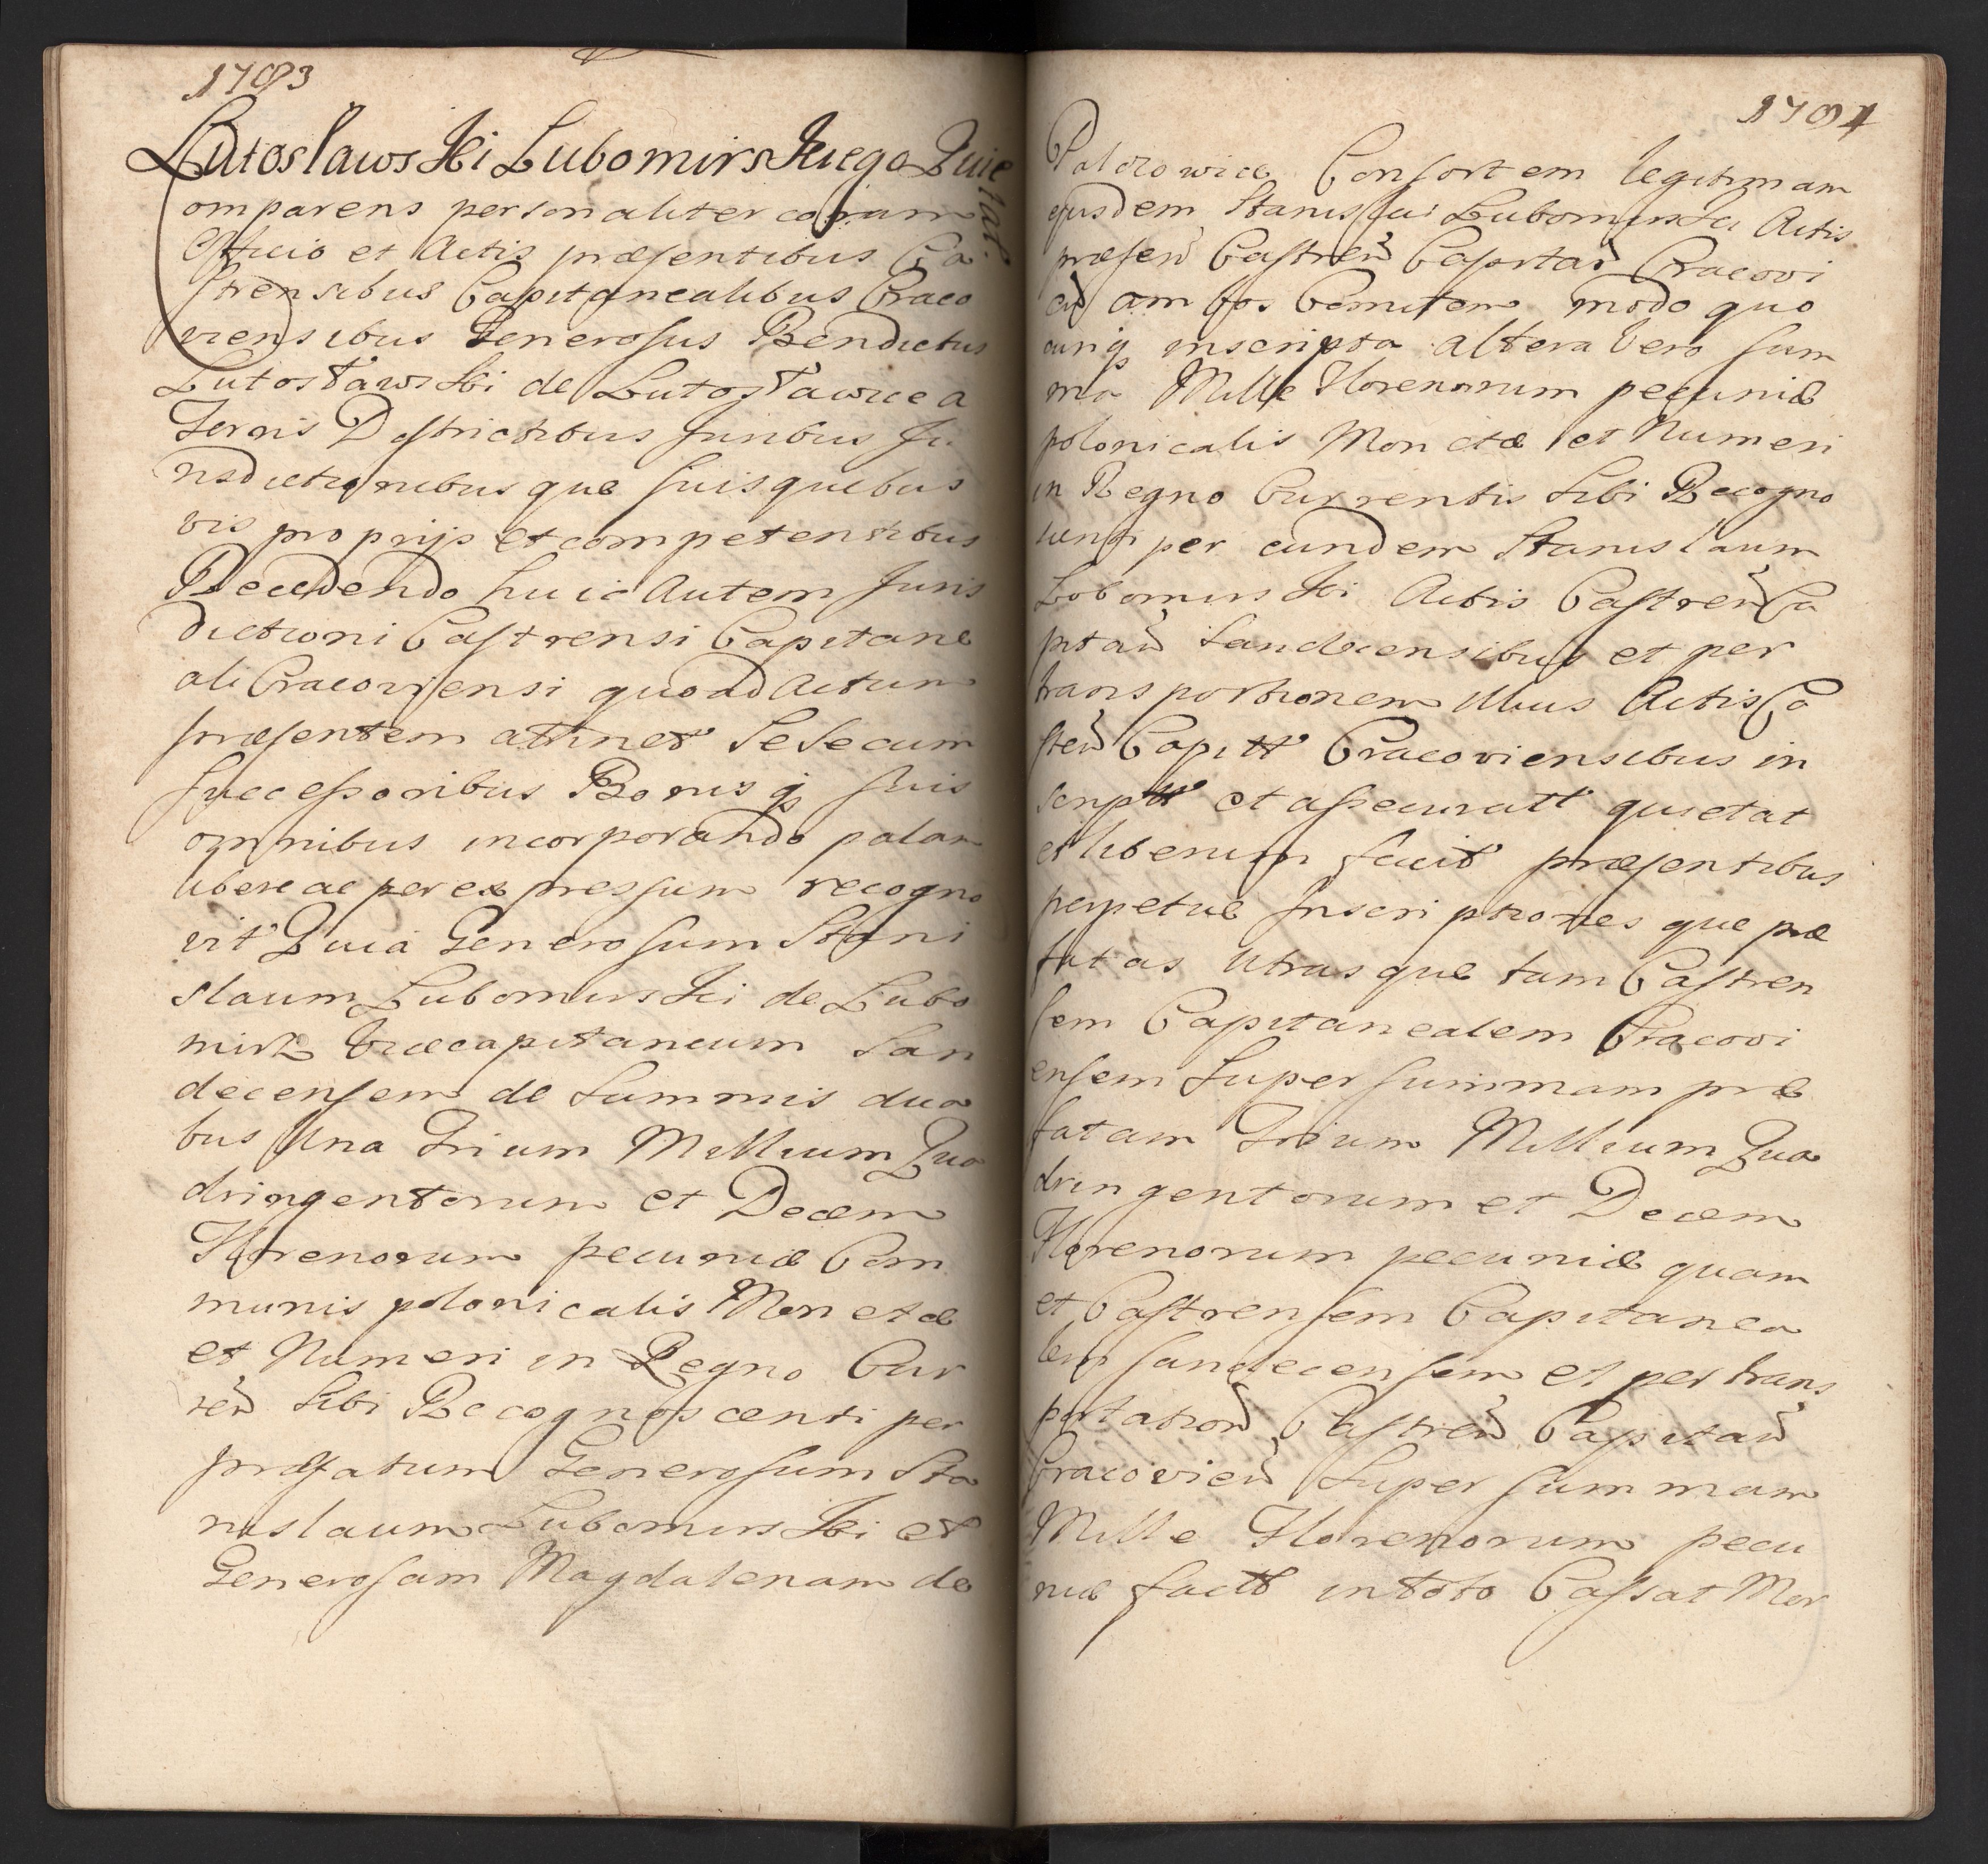 1703
Lutosławski Lubomirskiego Quie
tat
Comparens personaliter coram
Officio et Actis præsentibus Ca
strensibus Capitanealibus Craco
viensibus Generosus Bendictus
Lutosławski de Lutosławice a
Terris Districtibus Juribus Ju
risdictionibusque suis quibus
vis proprijs et competentibus
Recedendo huic Autem Juris
dictioni Castrensi Capitane
ali Cracoviensi quoad Actum
præsentem attinet Se Secum
successoribus Bonisq suis
omnibus incorporando palam
libere ac per expressum recogno
vit Quia Generosum Stani
slaum Lubomirski de Lubo
mirz Vicecapitaneum San
decensem de Summis dua
bus Una Trium Millium Qua
dringentorum et Decem
Florenorum pecuniæ Com
munis polonicalis Monetæ
et Numeri in Regno Cur
ren Sibi Recognoscenti per
præfatum Generosum Sta
nislaum Lubomirski et
Generosam Magdalenam de
1704
Consortem legitimam
ejusdem Stanislai Lubomirski Actis
præsen Castren Capitan Cracovi
en ambos Comitem modo quo
cunq inscripta altera Vero sum
ma Mille Florenorum pecuniæ
polonicalis Monetæ et Numeri
in Regno Currentis Sibi Recogno
scenti per eundem Stanislaum
Lobomirski Actis Castren Ca
pitan Sandecensibus et per
transportionem illius Actis Ca
stren Capitt Cracoviensibus in
scriptt et assecuratt quietat
et liberum facit præsentibus
perpetue Inscriptionesque præ
fatas Utrasque tam Castren
sem Capitanealem Cracovi
ensem Super summam præ
fatam Trium Millium Qua
dringentorum et Decem
Florenorum pecuniæ quam
et Castrensem Capitanea
lem sandecensem et per trans
portation Castren Capitan
Cracovien Super summam
Mille Florenorum pecu
niæ factt in toto Cassat Mor